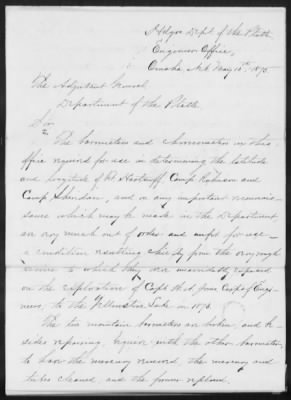 Hdqrs Dept. of the Platte
Engineer Office,
Omaha Neb May 10th, 1875.
The Adjutant General,
Department of the Platte.
Sir:
The barometers and chronometers in this
office required for use in determining the latitude
and longitude of Ft Hartsuff, Camp Robinson and
Camp Sheridan, and on any important reconnais-
sance which may be made in the Department
are very much out of order and unfit for use –
a condition resulting chiefly from the very rough
to which they were unavoidably exposed
on the exploration of Capt. W.A. Jones Corps of Engi-
neers, to the Yellowstone Lake in 1873.
The two mountain barometers are broken, and be-
sides repairing, require with the other barometers,
to have the mercury renewed, the mercury and
tubes cleaned, and the former replaced.